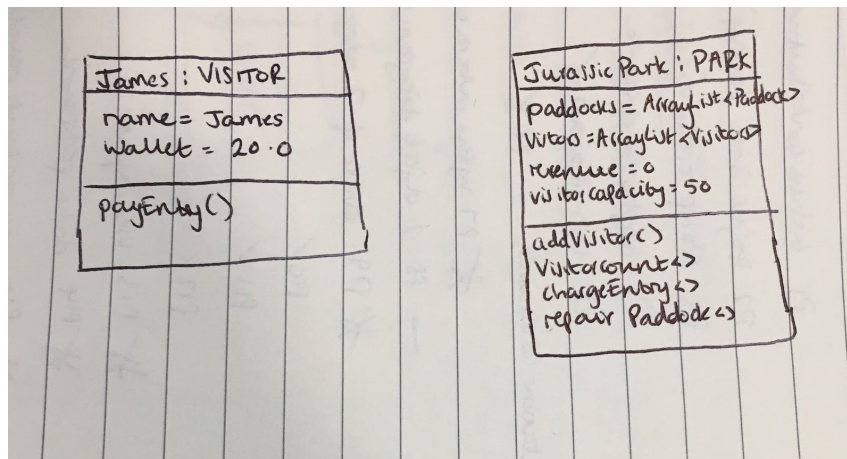 James : VISITOR
name = James
wallet = 20.0
payEntry()
Jurassic Park : PARK
paddocks = ArrayList<Paddock>
Visitors = ArrayList<Visitors>
revenue = 0
visitorcapacity = 50
addVisitor()
Visitorcount<>
chargeEntry<>
repair Paddock<>